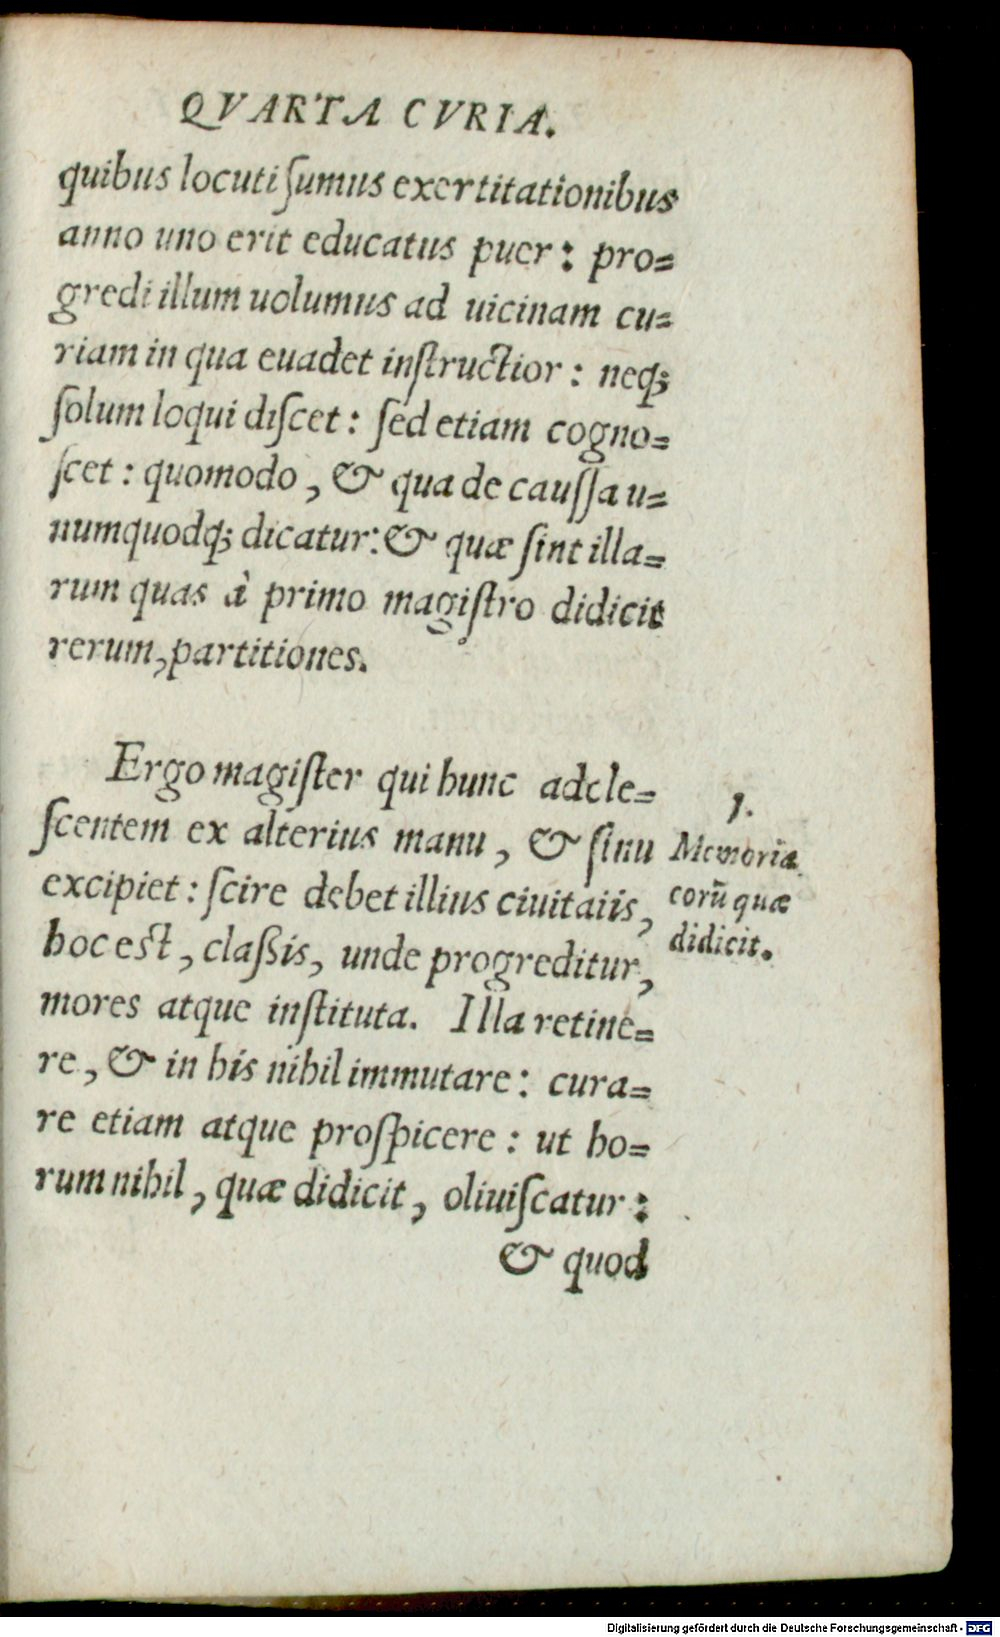 QVARTA CVRIA.
quibus locuti ſumus exertitationibus
anno uno erit educatus puer: pro=
gredi illum uolumus ad uicinam cu=
riam in qua euadet inſtructior: neq;
ſolum loqui diſcet: ſed etiam cogno=
ſcet: quomodo, & qua de cauſſa u=
numquodq; dicatur: & quæ ſint illa=
rum quas à primo magiſtro didicit
rerum, partitiones.
Ergo magiſter qui hunc adole=
ſcentem ex alterius manu, & ſinu
excipiet: ſcire debet illius ciuitaiis,
hoc eſt, claſsis, unde progreditur,
mores atque inſtituta. Illa retine=
re, & in his nihil immutare: cura=
re etiam atque proſpicere: ut ho=
rum nihil, quæ didicit, oliuiſcatur:
& quod
1.
Memoria
eorũ quæ
didicit.
Digitalisierung gefördert durch die Deutsche Forschungsgemeinschaft - DFG